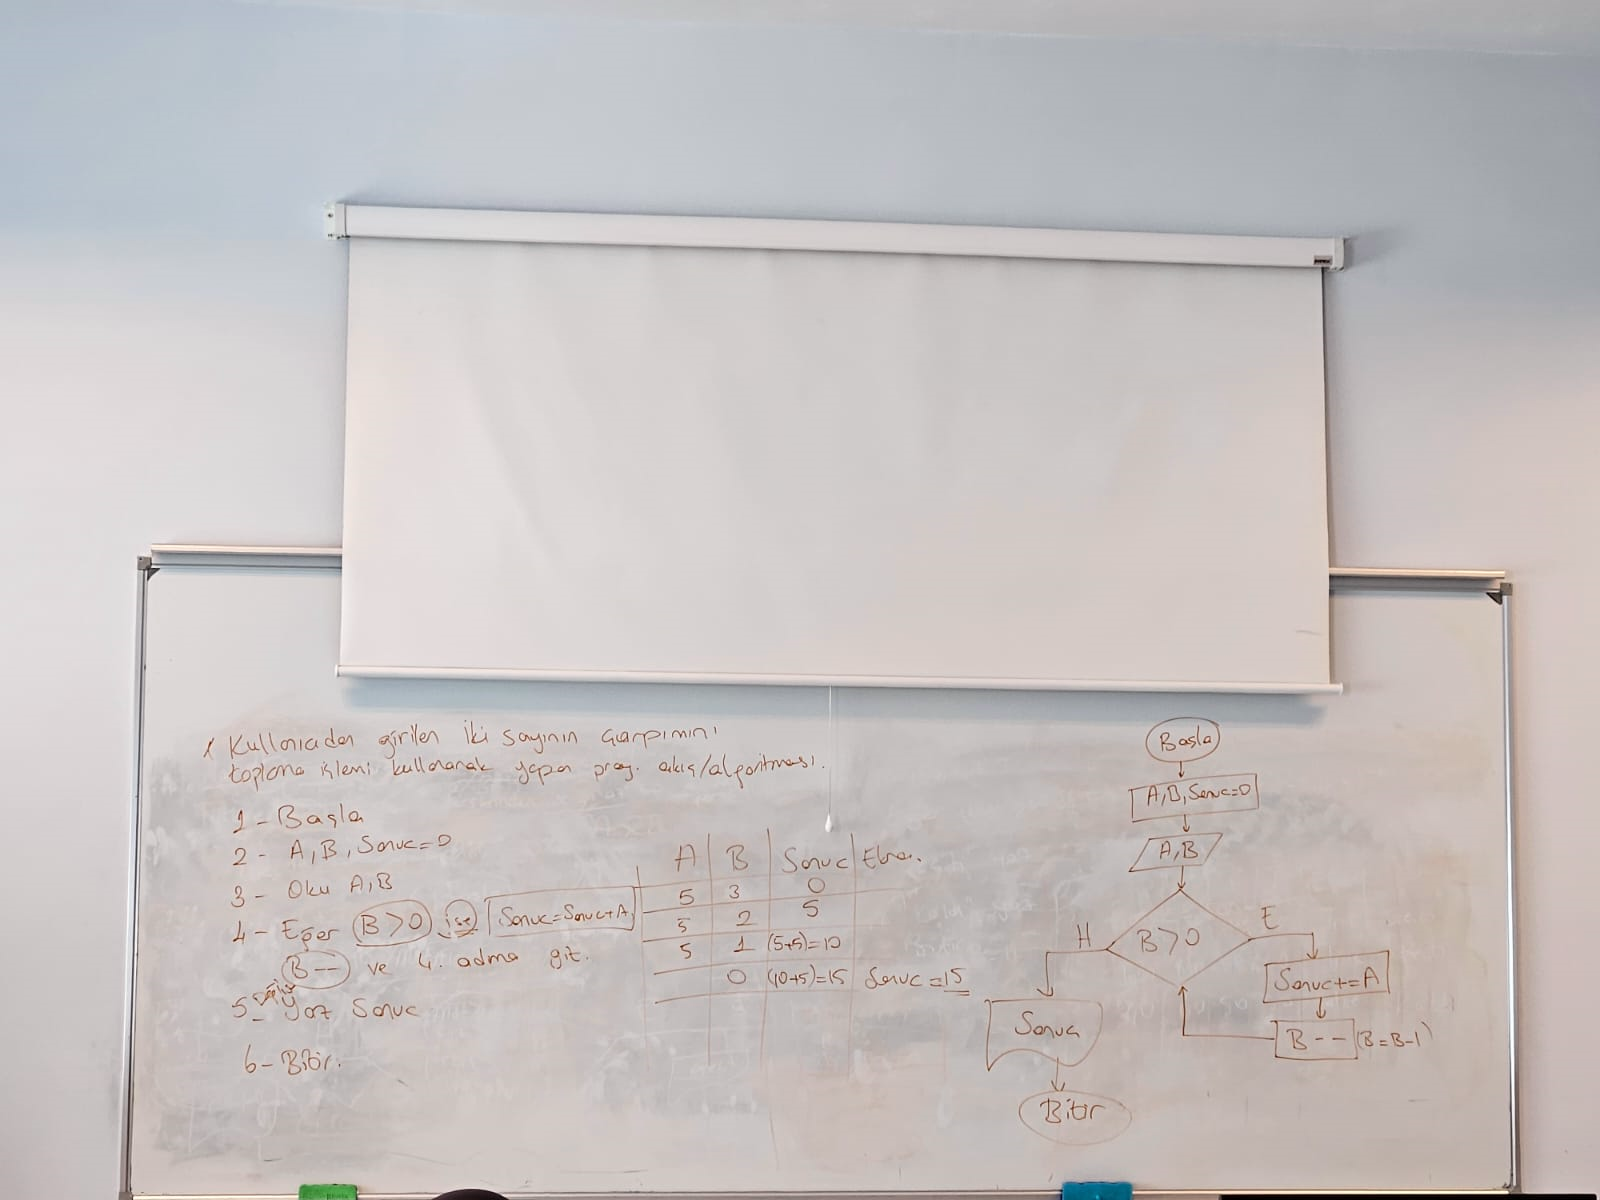 Kullanıcıdan girilen iki sayının çarpımını
toplama işlemi kullanarak yapan prog. akış/algoritması.
1- Başla
2- A, B, Sonuc=0
3- Oku A,B
4- Eğer B>0 ise Sonuc=Sonuc+A,
B-- ve 4. adıma git.
5- Yaz Sonuc
6- Bitir.
A B Sonuc Ekran.
5 3 0
5 2 5
5 1 (5+5)=10
0 (10+5)=15 Sonuc=15
Başla
A,B,Sonuc=0
A,B
B>0
H
E
Sonuc+=A
B-- (B=B-1)
Sonuc
Bitir